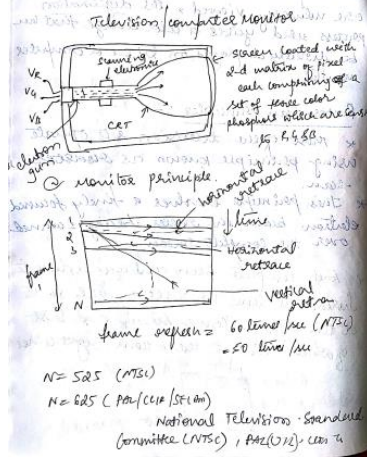 Television/computer Monitor
scanning
electronics
VR
VG
VB
CRT
electron
gun
screen coated with
2-d matrix of pixel
each comprising of a
set of three color
phosphors which are
to R, G & B
Monitor principle.
horizontal
retrace
1
2
3
line
Horizontal
retrace
frame
1
N
Vertical
frame refresh = 60 times/sec (NTSC)
= 50 times/sec
N = 525 (NTSC)
N = 625 (PAL/CCIR/SECAM)
National Television Standard
Committee (NTSC), PAL(U.K)